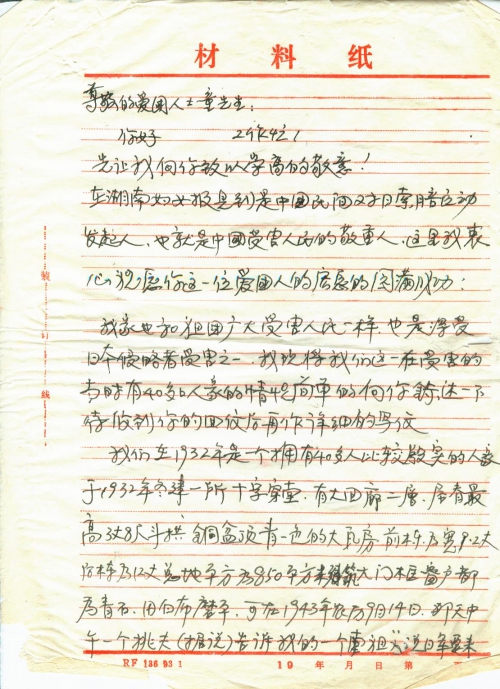 材料纸
尊敬的爱国人士童先生：
你好 工作忙！
先让我向你致以崇高的敬意！
在湖南妇女报见到是中国民间对日索赔运动
发起人，也就是中国受害人民的敬重人，这里我衷
心祝愿你这一位爱国人的宏愿的圆满成功：
我家也和祖国广大受害人民一样也是深受
日本侵略者受害之一，我现将我们这一在受害的
当时有40多口人家的情况简单的向你叙述一下
待收到你的回仪后再作详细的写仪
我们在1932年是一个拥有40多人比较殷实的人家
于1932年冬建一所十字穿堂，有大回廊二层，屋脊最
高3丈8尺斗拱 铜盆顶青一色的大瓦房前栋为宽9.2丈
后栋为12丈 总地平方为850平方 大门框窗户都
为青石，用白布磨平，可在1943年农历9月14日，那天中
午一个挑夫(据说)告诉我的一个 祖父说日军要来
装 订 线
RF 136 93 1 19 年 月 日 第 页